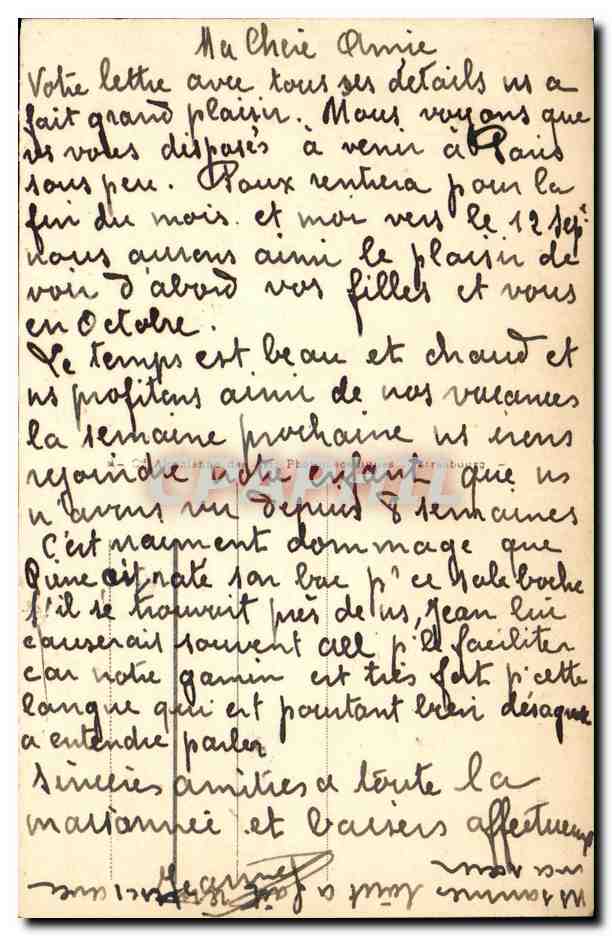 Ma Chère Amie
Votre lettre avec tous ses détails ns a
fait grand plaisir. Nous voyons que
vs vous disposés à venir à Paris
sous peu. rentrera pour la
fin du mois et moi vers le 12 Sept
nous aurons ainsi le plaisir de
voir d'abord vos filles et vous
en Octobre.
Le temps est beau et chaud et
ns profitons ainsi de nos vacances
la semaine prochaine ns irons
rejoindre notre enfant que ns
n'avons vu depuis 8 semaines
C'est vraiment dommage que
ait raté son bac pr ce sale boche
s'il se trouvait près de ns, Jean lui
causerait souvent all pr le faciliter
car notre gamin est très fort pr cette
langue qui est pourtant bien désagréable
a entendre parler
Sincères amitiés de toute la
maisonnée et baisers affectueux
Jeanne
CPAPHIL
Photomécaniques - Strasbourg -